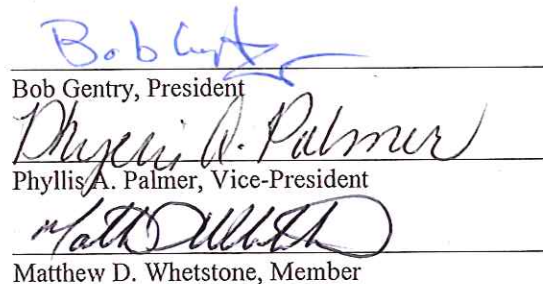 Bob Gentry
Bob Gentry, President
Phyllis A. Palmer
Phyllis A. Palmer, Vice-President
Matth D Whetst
Matthew D. Whetstone, Member